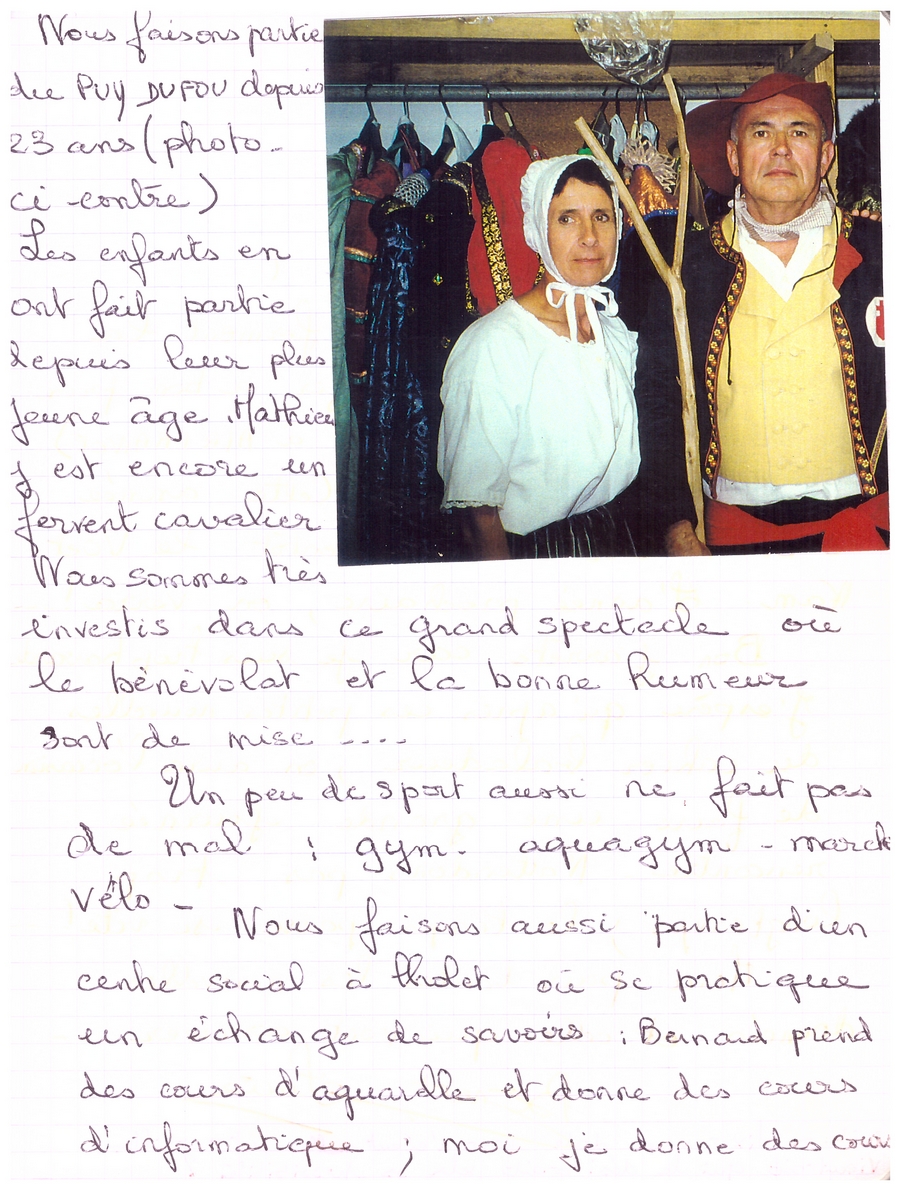 Nous faisons partie
du PUY DUFOU depuis
23 ans (photo -
ci - contre)
Les enfants en
ont fait partie
depuis leur plus
jeune âge. Mathieu
y est encore un
fervent cavalier
Nous sommes très
investis dans ce grand spectacle où
le bénévolat et la bonne humeur
sont de mise ....
Un peu de sport aussi ne fait pas
de mal : gym - aquagym - marche
vélo -
Nous faisons aussi partie d'un
centre social à Cholet où se pratique
un échange de savoirs : Bernard prend
des cours d'aquarelle et donne des cours
d'informatique ; moi je donne des cours